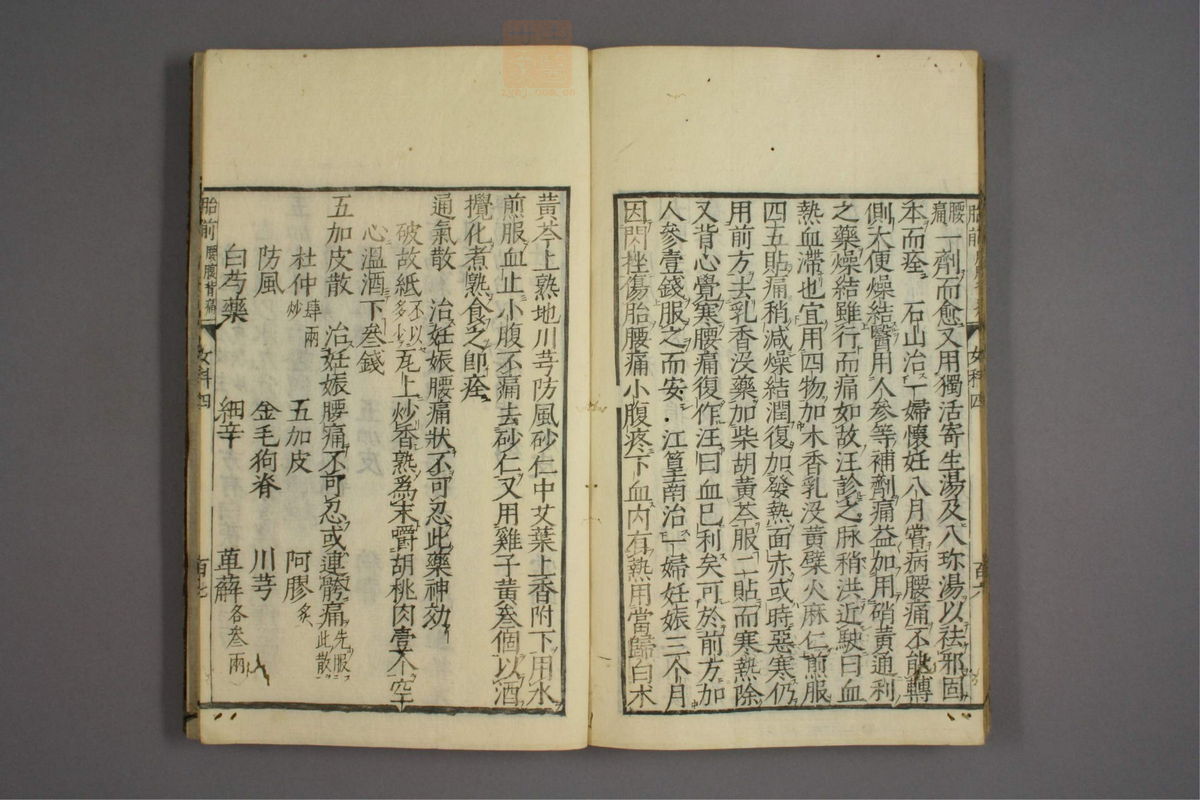 腰痛一劑而愈又用獨活寄生湯及八珎湯以祛邪固
本而痊　石山治一婦懷妊八月嘗病腰痛不能轉
側大便燥結醫用人參等補劑痛益加用硝黃通利
之藥燥結雖行而痛如故汪診之脉稍洪近駛曰血
熱血滯也宜用四物加木香乳没黃檗火麻仁煎服
四五貼痛稍减燥結潤復加發熱面赤或時惡寒仍
用前方去乳香没藥加柴胡黃芩服二貼而寒熱除
又背心覺寒腰痛復作汪曰血已利矣可於前方加
人參壹錢服之而安・江篁南治一婦妊娠三个月
因閃挫傷胎腰痛小腹疼下血内有熱用當歸白术
黃芩上熟地川芎防風砂仁中艾葉上香附下用水
煎服血止小腹不痛去砂仁又用雞子黃叁個以酒
攪化煮熟食之卽痊
通氣散　治妊娠腰痛狀不可忍此藥神効
破故紙不以多少瓦上炒香熟爲末嚼胡桃肉壹个空
心溫酒下叁錢
五加皮散　治妊娠腰痛不可忍或連䯊痛先服此散
杜仲肆兩炒　五加皮　阿膠炙
防風　金毛狗脊　川芎
白芍藥　細辛　萆薢各叁兩
胎前　腰腹背痛　女科四　百七